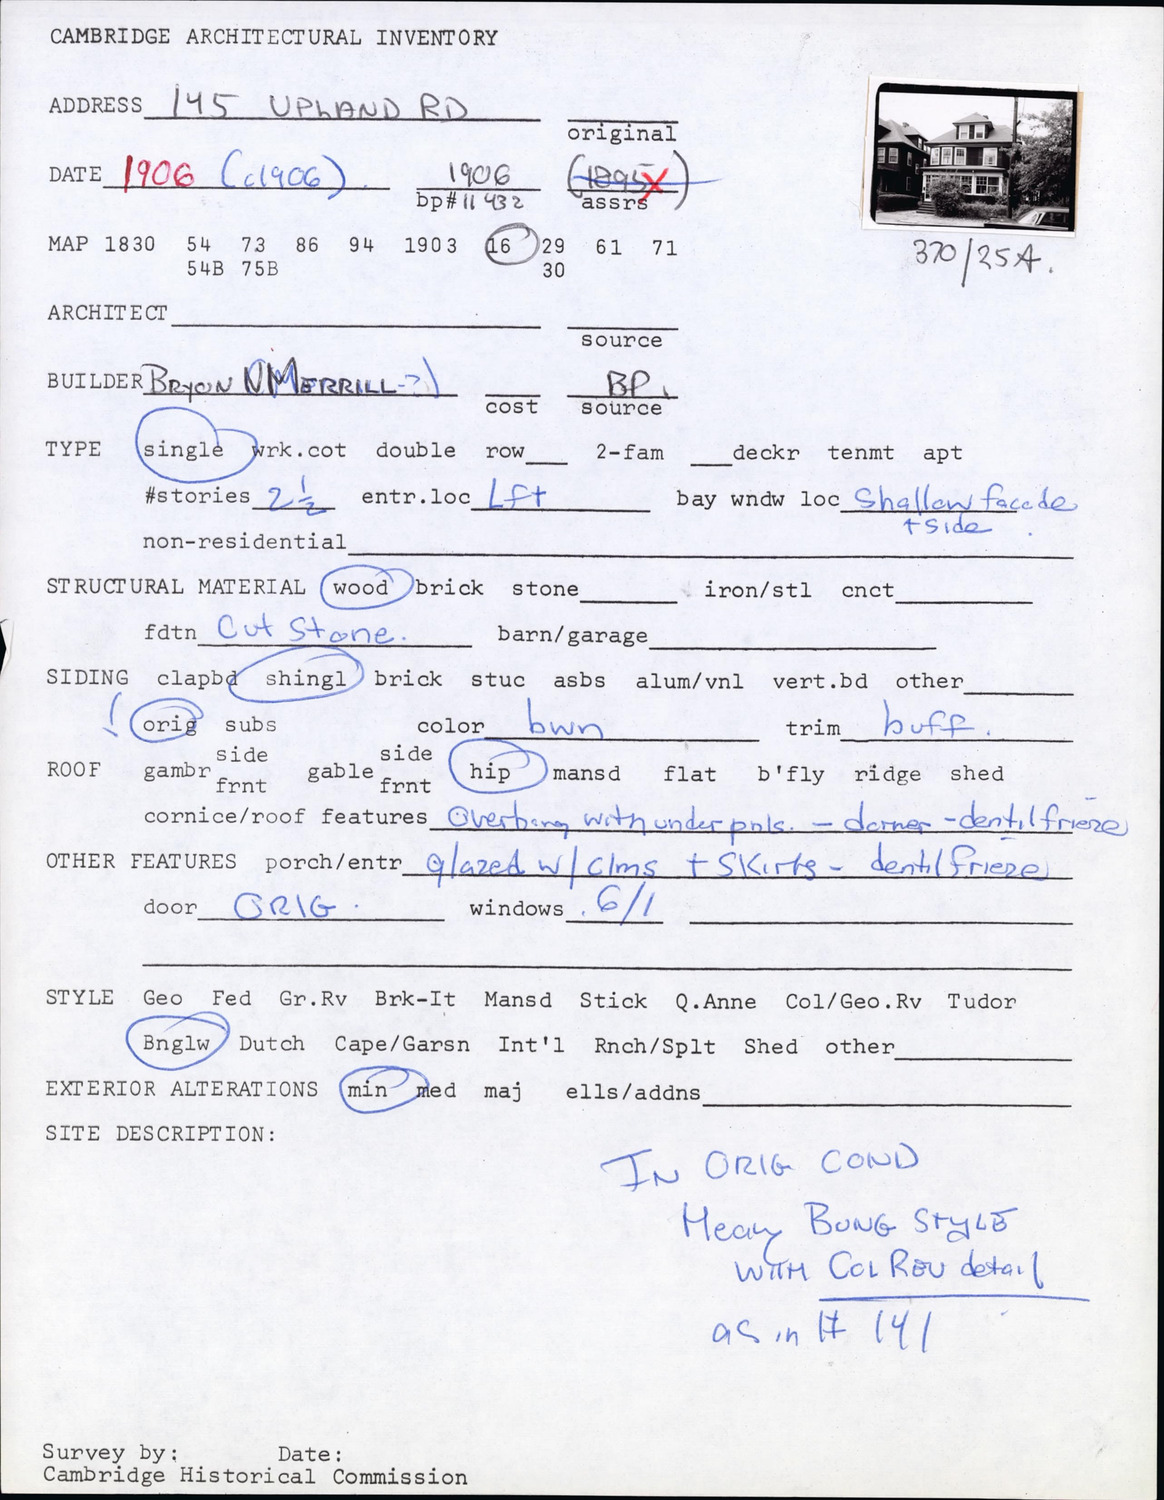 CAMBRIDGE ARCHITECTURAL INVENTORY
ADDRESS 145 UPLAND RD
original
DATE 1906 (c1906) 1906 (1895X)
bp# 11432 assrs
MAP 1830 54 73 86 94 1903 16 29 61 71
54B 75B 30
370/25A.
ARCHITECT
source
BUILDER BRYON N MERRILL -?) BP.
cost source
TYPE single wrk.cot double row 2-fam deckr tenmt apt
#stories 2 1/2 entr.loc Lft bay wndw loc Shallow facade
+ side
non-residential
STRUCTURAL MATERIAL wood brick stone iron/stl cnct
fdtn Cut Stone. barn/garage
SIDING clapbd shingl brick stuc asbs alum/vnl vert.bd other
! orig subs color bwn trim buff.
side side
ROOF gambr gable hip mansd flat b'fly ridge shed
frnt frnt
cornice/roof features Overhang with under pnls. - dormer - dentil frieze
OTHER FEATURES porch/entr glazed w/ clms + skirts - dentil frieze
door ORIG. windows 6/1
STYLE Geo Fed Gr.Rv Brk-It Mansd Stick Q.Anne Col/Geo.Rv Tudor
Bnglw Dutch Cape/Garsn Int'l Rnch/Splt Shed other
EXTERIOR ALTERATIONS min med maj ells/addns
SITE DESCRIPTION:
IN ORIG COND
Heavy BUNG STYLE
WITH COL REV detail
as in # 141
Survey by: Date:
Cambridge Historical Commission